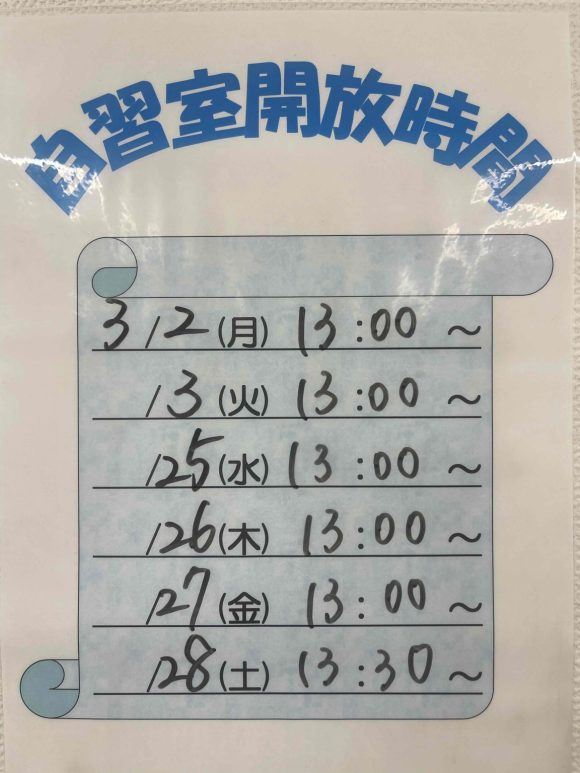 自習室開放時間
3/2(月) 13:00 ~
/3(火) 13:00 ~
/25(水) 13:00 ~
/26(木) 13:00 ~
/27(金) 13:00 ~
/28(土) 13:30 ~